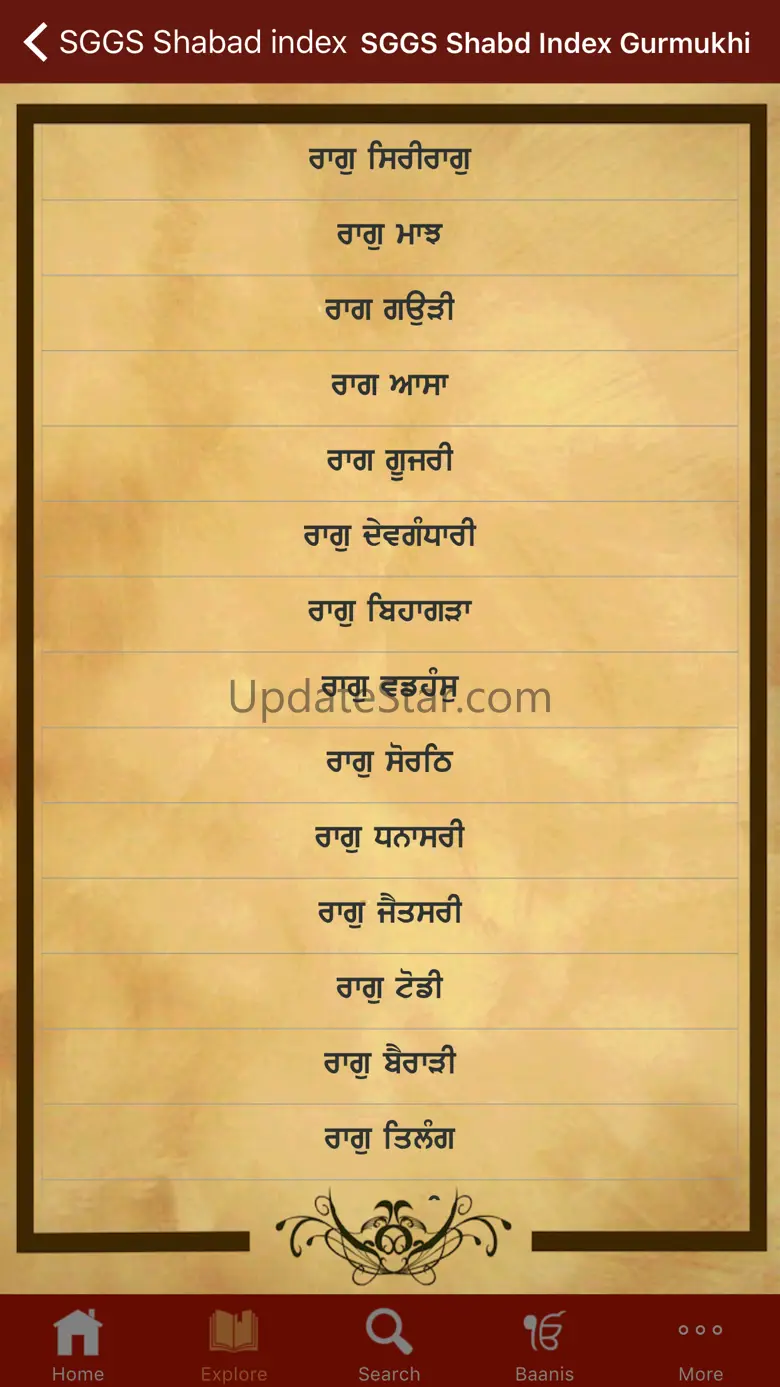 SGGS Shabad index SGGS Shabd Index Gurmukhi
ਰਾਗੁ ਸਿਰੀਰਾਗੁ
ਰਾਗੁ ਮਾਝ
ਰਾਗ ਗਉੜੀ
ਰਾਗ ਆਸਾ
ਰਾਗ ਗੂਜਰੀ
ਰਾਗੁ ਦੇਵਗੰਧਾਰੀ
ਰਾਗੁ ਬਿਹਾਗੜਾ
ਰਾਗੁ ਵਡਹੰਸੁ
UpdateStar.com
ਰਾਗੁ ਸੋਰਠਿ
ਰਾਗੁ ਧਨਾਸਰੀ
ਰਾਗੁ ਜੈਤਸਰੀ
ਰਾਗੁ ਟੋਡੀ
ਰਾਗੁ ਬੈਰਾੜੀ
ਰਾਗੁ ਤਿਲੰਗ
ੴ
Home Explore Search Baanis More